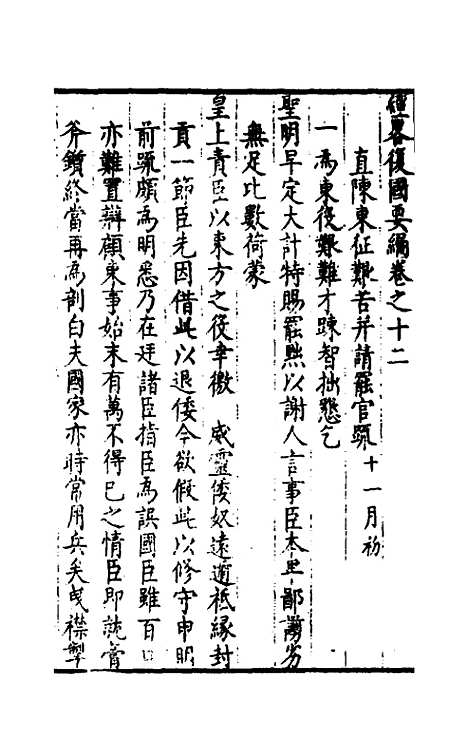 經畧復國要編卷之十二
直陳東征艱苦并請罷官疏 十一月初
一為東役艱難才踈智拙懇乞
聖明早定大計特賜罷黜以謝人言事臣本至鄙謭劣
無足比數荷蒙
皇上責臣以東方之役幸徼 威靈倭奴遠遁祗緣封
貢一節臣先因借此以退倭今欲假此以修守申明
前疏頗為明悉乃在廷諸臣指臣為誤國臣雖百口
亦難置辯顧東事始末有萬不得已之情臣即就膏
斧鑕終當再為剖白夫國家亦時常用兵矣曵襟掣